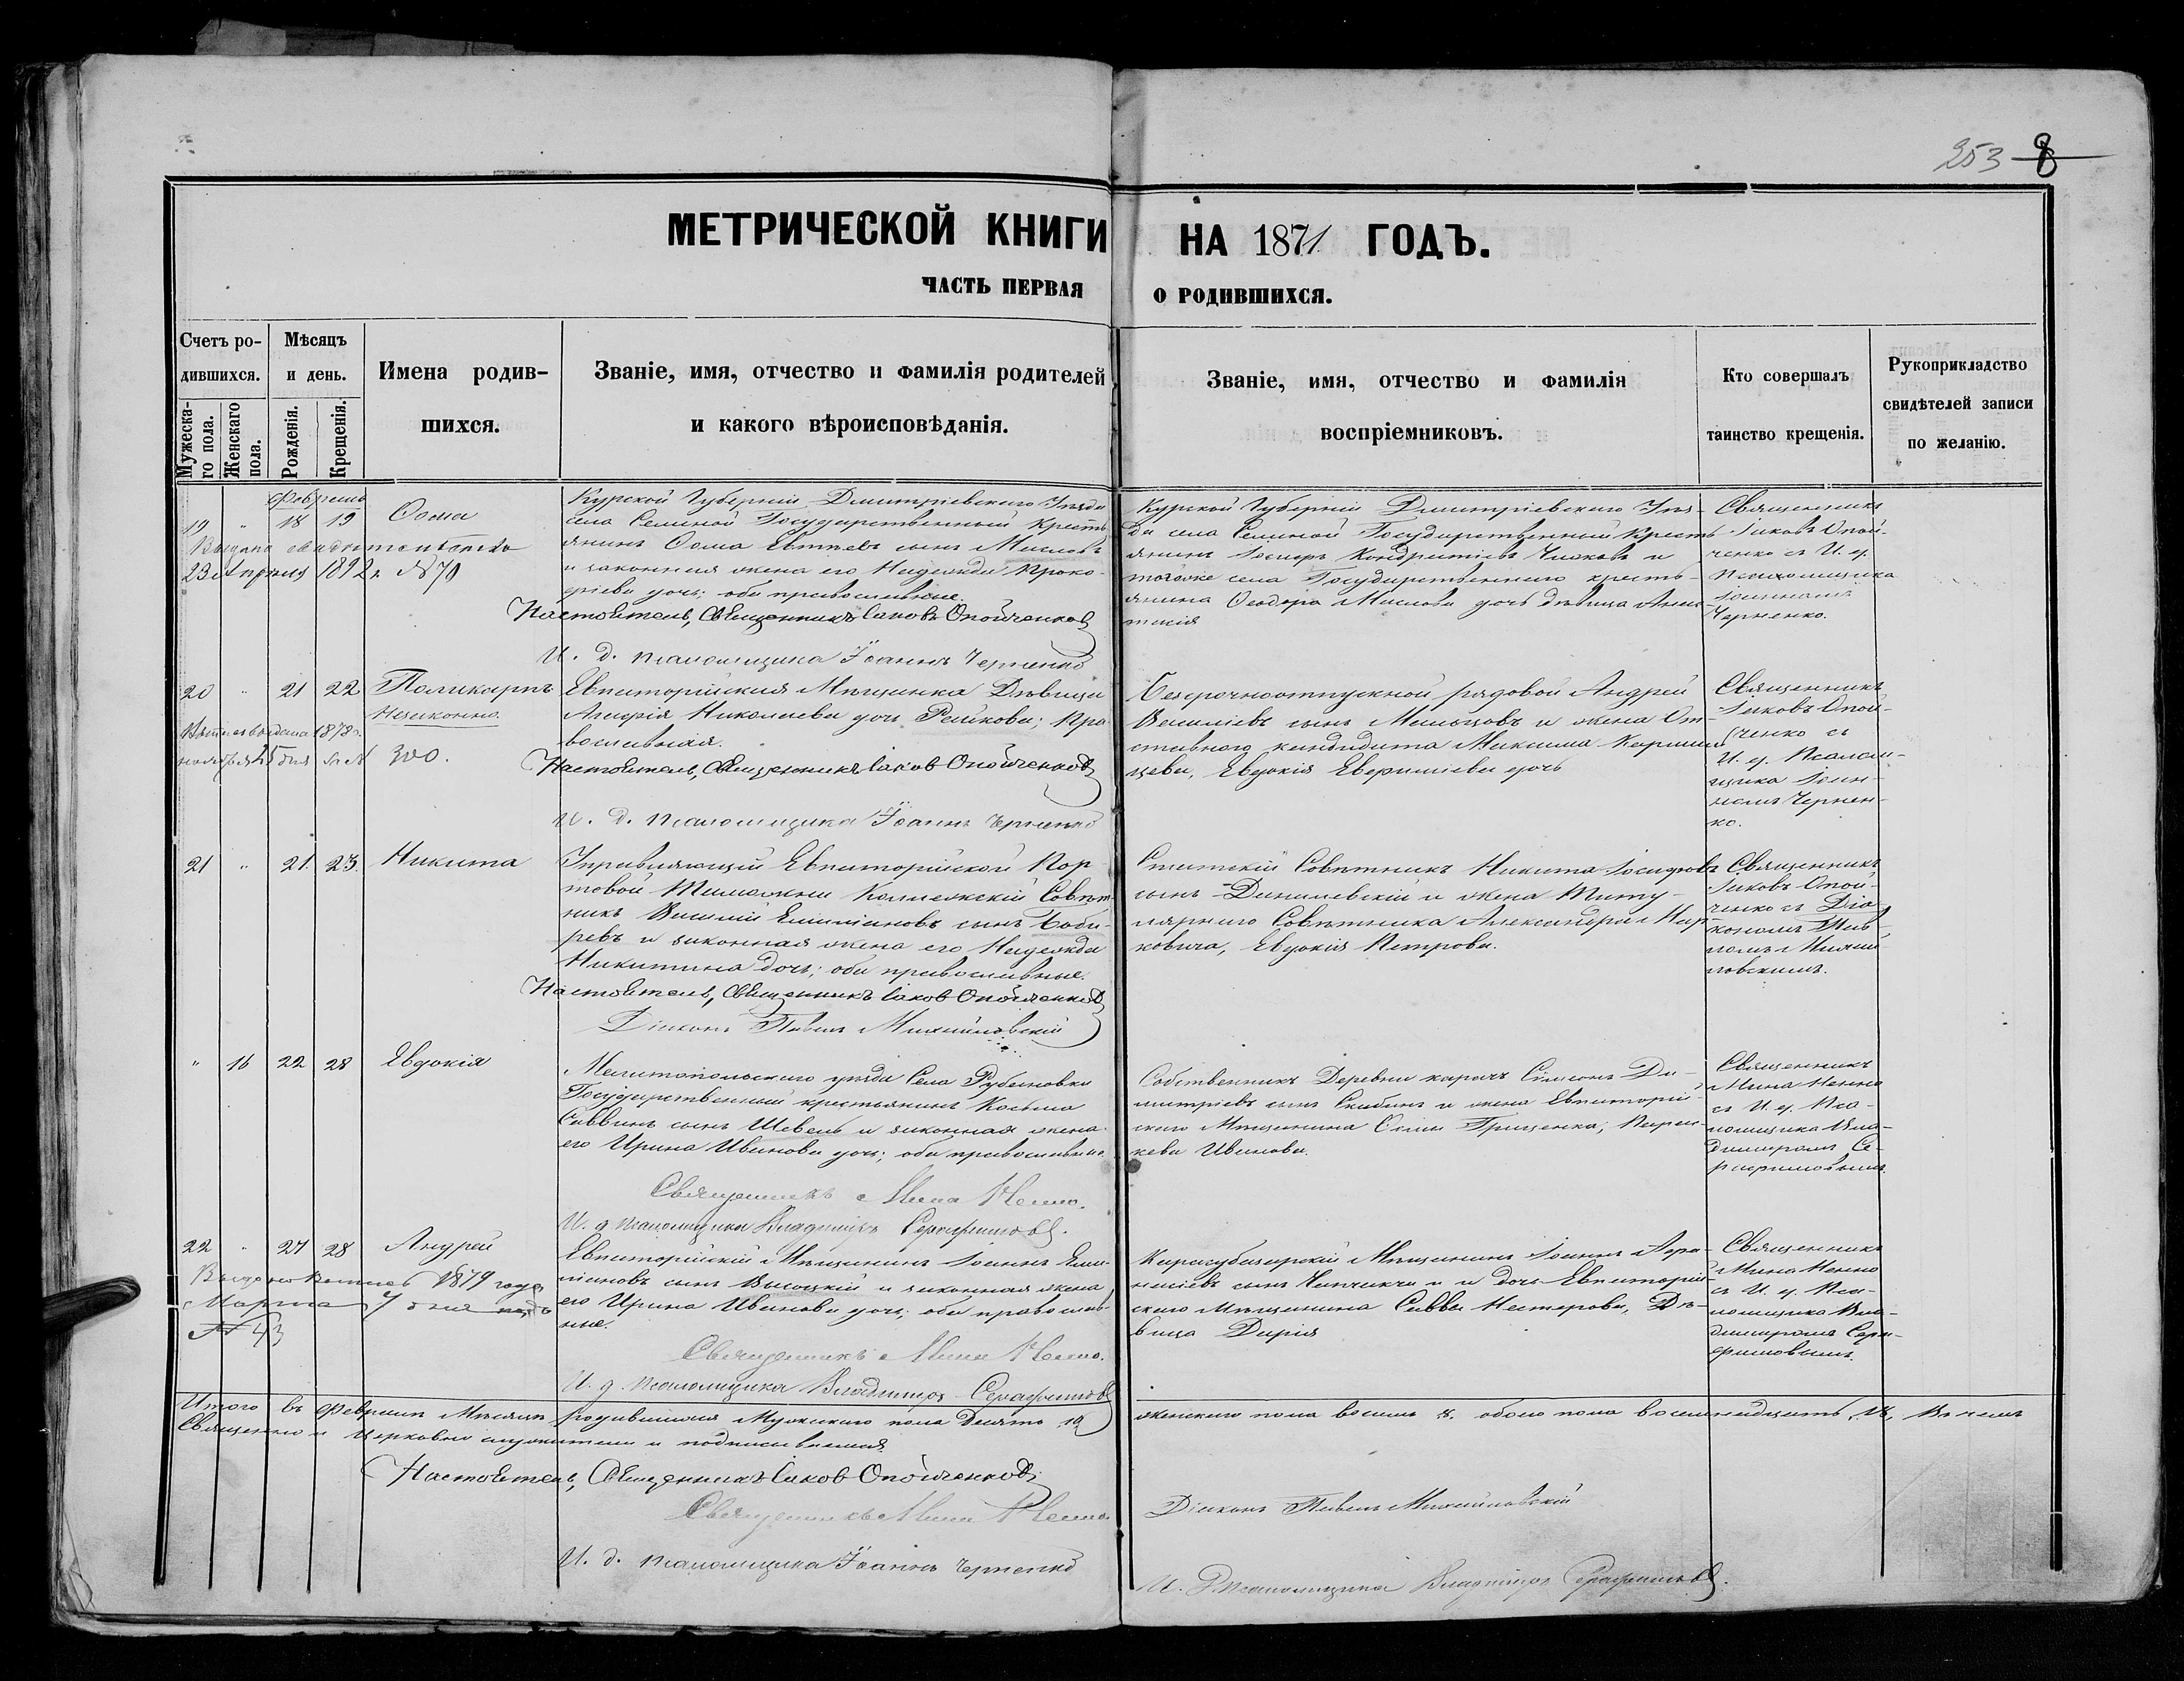 253 8
МЕТРИЧЕСКОЙ КНИГИ НА 1871 ГОДЪ.
ЧАСТЬ ПЕРВАЯ О РОДИВШИХСЯ.
Счетъ ро-
дившихся.
Мужеска-
го пола.
Женскаго
пола.
Мѣсяцъ
и день.
Рожденія.
Крещенія.
Имена родив-
шихся.
Званіе, имя, отчество и фамилія родителей
и какого вѣроисповѣданія.
Званіе, имя, отчество и фамилія
воспріемниковъ.
Кто совершалъ
таинство крещенія.
Рукоприкладство
свидѣтелей записи
по желанію.
Февраль
19 " 18 19 Ѳома
Выдано свидѣтельство
23 Апрѣля 1892 г. № 70
Курской Губерніи Дмитріевскаго Уѣзда
села Государственный Кресть-
янинъ Ѳома сынъ Масловъ
и законная жена его Надежда Проко-
фіева дочь; оба православные.
Настоятель, Священникъ Іаковъ Опойченковъ
И. д. псаломщика Іоаннъ Черненко
Курской Губерніи Дмитріевскаго Уѣз-
да села Государственный Кресть-
янинъ Іосифъ Кондратіевъ и
тогоже села Государственнаго кресть-
янина Ѳеодора Маслова дочь дѣвица Анас-
тасія
Священникъ
Іаковъ Опой-
ченко съ И. д.
Псаломщика
Іоанномъ
Черненко.
20 " 21 22 Поликарпъ
Незаконно.
1878 г.
ноября 25 дня за № 300.
Евпаторійская Мѣщанка Дѣвица
Николаева дочь Рашкова; Пра-
вославная.
Настоятель, Священникъ Іаковъ Опойченковъ
И. д. псаломщика Іоаннъ Черненко
Безсрочноотпускной рядовой Андрей
Василіевъ сынъ Мальцовъ и жена От-
ставного кандидата Максима
Евдокія дочь
Священникъ
Іаковъ Опой-
ченко съ
И. д. Псалом-
щика Іоан-
номъ Чернен-
ко.
21 " 21 23 Никита
Управляющій Евпаторійской Пор-
товой Таможни Коллежскій Совѣт-
никъ Василій Емиліановъ сынъ Бобы-
ревъ и законная жена его Надежда
Никитина дочь; оба православные.
Настоятель, Священникъ Іаковъ Опойченковъ
Діаконъ Павелъ Михайловскій
Статскій Совѣтникъ Никита Іосифовъ
сынъ Данилевскій и жена Титу-
лярнаго Совѣтника Александра Мар-
ковича, Евдокія Петрова.
Священникъ
Іаковъ Опой-
ченко съ Діа-
кономъ Пав-
ломъ Михай-
ловскимъ.
" 16 22 28 Евдокія
Мелитопольскаго уѣзда Села Рубановки
Государственный крестьянинъ Косьма
Саввинъ сынъ Шевель и законная жена
его Ирина Иванова дочь; оба православные.
Священникъ Мина Ненно.
И. д. псаломщика Владиміръ Серафимовъ.
Собственникъ Деревни Карачъ Симеонъ Ди-
митріевъ сынъ Скибинъ и жена Евпаторій-
скаго Мѣщанина Саввы Грищенка, Парас-
кева Иванова.
Священникъ
Мина Ненно
съ И. д. Пса-
ломщика Вла-
диміромъ Се-
рафимовымъ.
22 " 27 28 Андрей
Выдано 1879 года
Марта 7 дня подъ
№ 43
Евпаторійскій Мѣщанинъ Іоаннъ Еми-
ліановъ сынъ Высоцкій и законная жена
его Ирина Иванова дочь; оба православ-
ные.
Священникъ Мина Ненно.
И. д. псаломщика Владиміръ Серафимовъ
Карасубазарскій Мѣщанинъ Іоаннъ Аѳа-
насіевъ сынъ и дочь Евпаторій-
скаго Мѣщанина Саввы Нестерова, Дѣ-
вица Дарія
Священникъ
Мина Ненно
съ И. д. Пса-
ломщика Вла-
диміромъ Сера-
фимовымъ.
Итого въ Февралѣ Мѣсяцѣ родившихся Мужескаго пола Десять 10 женскаго пола восемь 8. обоего пола восемнадцать 18. Въ чемъ
Священно и Церковно служители и подписываемся.
Настоятель, Священникъ Іаковъ Опойченковъ
Священникъ Мина Ненно.
Діаконъ Павелъ Михайловскій
И. д. псаломщика Іоаннъ Черненко
И. д. псаломщика Владиміръ Серафимовъ.